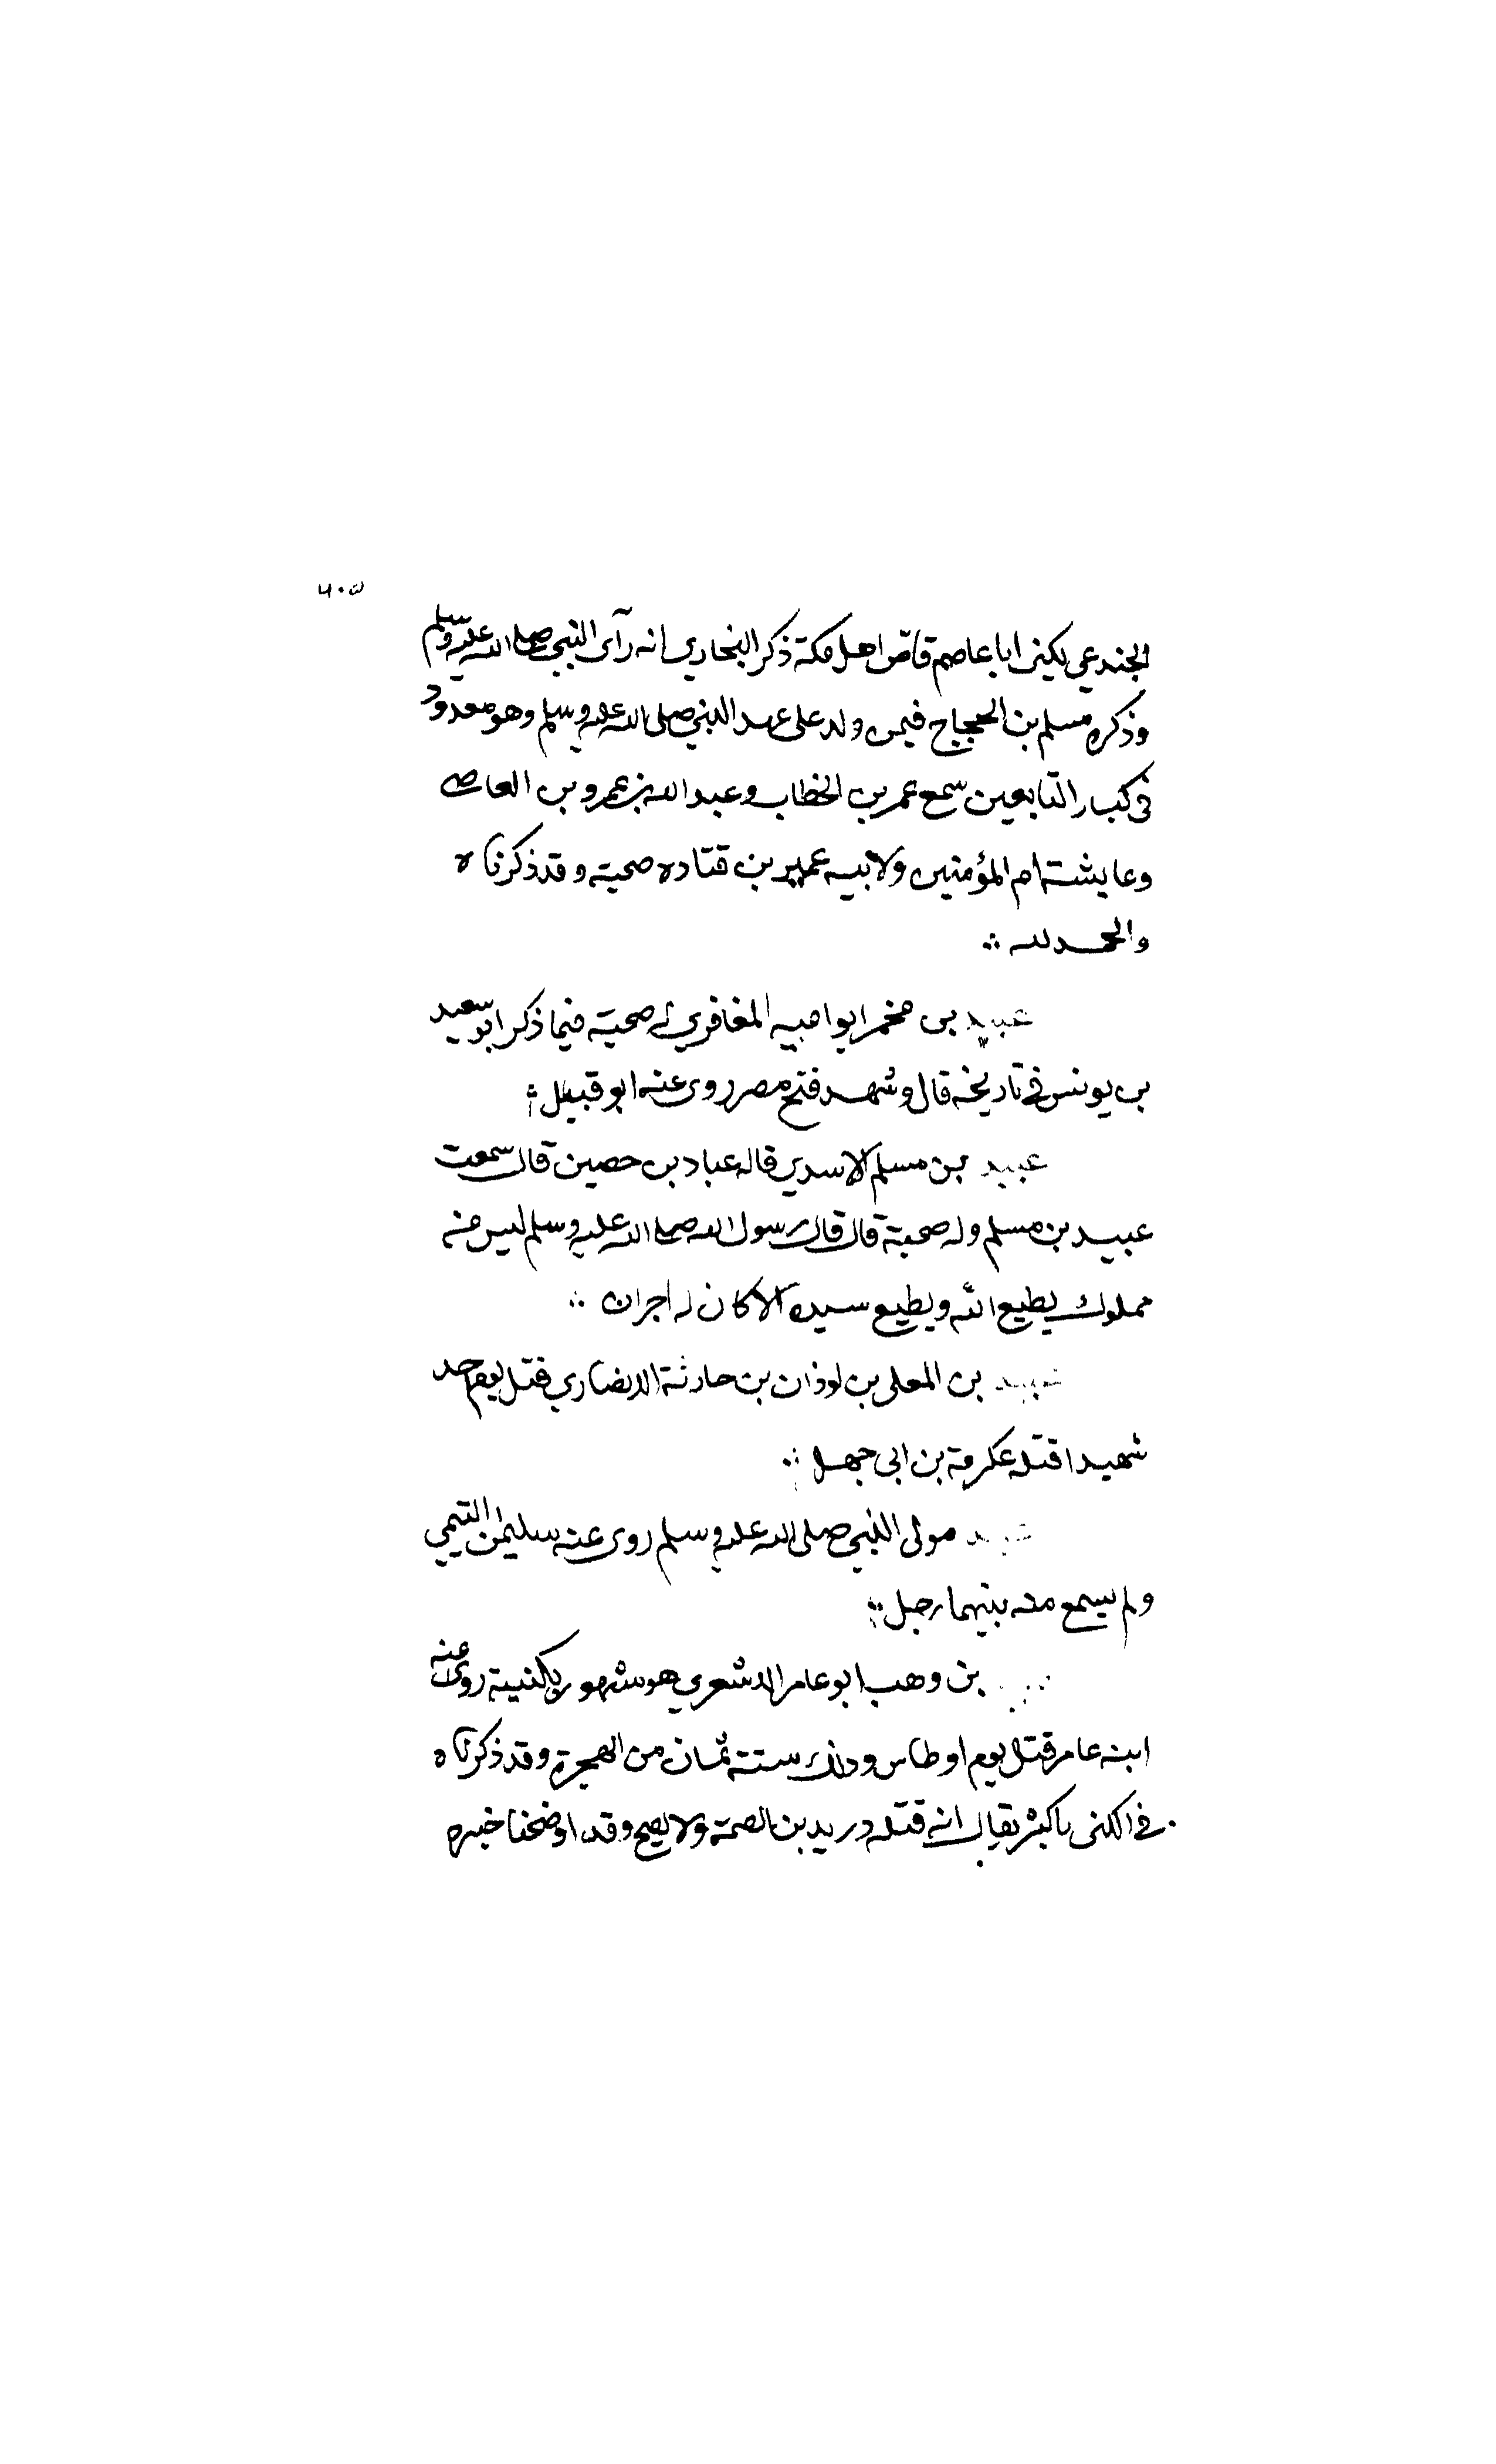 ٦٠٥
الجندعي يكنى ابا عاصم قاص اهل مكة ذكر البخاري انه رآى النبي صلى الله عليه وسلم
وذكره مسلم بن الحجاج فيمن ولد على عهد النبي صلى الله عليه وسلم وهو معدود
فى كبار التابعين سمع عمر بن الخطاب وعبد الله بن عمرو بن العاص
وعايشة ام المؤمنين ولابيه عمير بن قتاده صحبته وقد ذكرناه
والحمد لله
عبيد بن مخمر ابو اميه المغافري له صحبته فيما ذكر ابو سعيد
بن يونس في تاريخه قال وشهد فتح مصر روى عنه ابو قبيل
عبيد بن مسلم الاسدي قاله عباد بن حصين قال سمعت
عبيد بن مسلم وله صحبة قال قال رسول الله صلى الله عليه وسلم ليس منه
مملوك يطيع الله ويطيع سيده الا كان له اجران
عبيد بن المعلى بن لوذان بن حارثة الانصاري قتل يوم احد
شهيدا قتله عكرمة بن ابى جهل
عبيد مولى النبي صلى الله عليه وسلم روى عنه سليمن التيمي
ولم يسمع منه بينهما رجل
بن وهب ابو عامر الاشعري هو مشهور بكنيته روى عنه
ابنه عامر قتل يوم اوطاس وذلك سنة ثمان من الهجرة وقد ذكرناه
في الكنى باكثر يقال انه قتله دريد بن الصمة ولا يصح وقد اوضحنا خبره